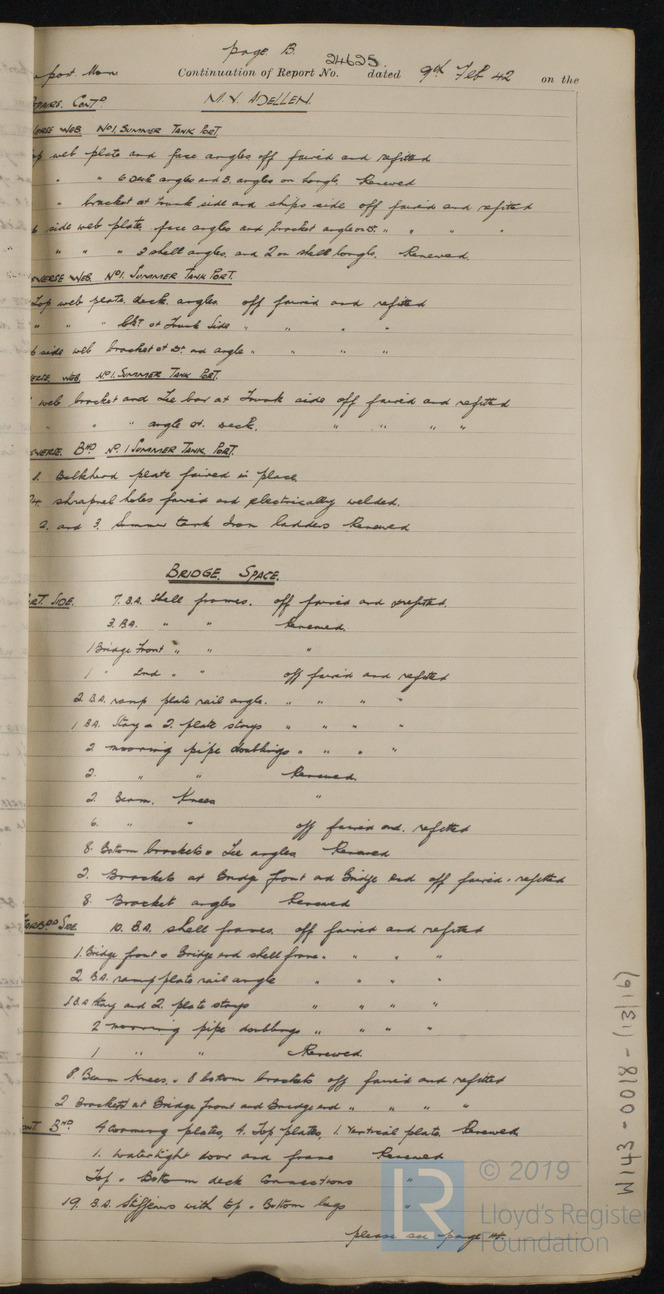 page 13.
24625
port Mon Continuation of Report No. dated 9th Feb 42 on the
M.V. ADELLEN.
REPAIRS. CONTD
VERSE WEB. No1. SUMMER TANK PORT.
web plate and face angles off faired and refitted
" " 6 Deck angles and 3. angles on longls. Renewed
" bracket at trunk side and ships side off faired and refitted
side web plate, face angles and bracket angle " " " "
" " " 3 shell angles, and 2 on shell longls. Renewed.
VERSE WEB. No1. SUMMER TANK PORT.
Top web plate, deck angles off faired and refitted
" " " bkt at Trunk Side " " " "
side web bracket at and angle " " " "
VERSE WEB. No1. SUMMER TANK PORT.
web bracket and Tee bar at Trunk side off faired and refitted
" " " angle at deck. " " " "
VERSE. BHD No. 1 SUMMER TANK PORT.
1. Bulkhead plate faired in place
24. shrapnel holes faired and electrically welded.
2. and 3. Summer tank Iron ladders Renewed
BRIDGE SPACE.
PORT. SIDE. 7. B.A. Shell frames. off faired and refitted.
3. B.A. " " Renewed.
1 Bridge Front " " "
1 " End " " off faired and refitted
2. B.A. ramp plate rail angle. " " " "
1 B.A. Stay & 2. plate stays " " " "
2 mooring pipe doublings " " " "
2. " " Renewed.
2. Beam. Knees "
6. " " off faired and. refitted
8. Bottom brackets & Tee angles Renewed
2. Brackets at Bridge front and Bridge End off faired & refitted
8. Bracket angles Renewed
STARBOD SIDE. 10. B.A. shell frames. off faired and refitted
1. Bridge front & Bridge end shell frame. " " "
2 B.A. ramp plate rail angle " " " "
1 B.A stay and 2. plate stays " " " "
2 mooring pipe doublings " " " "
1 " " Renewed.
8. Beam Knees. & 8 bottom brackets off faired and refitted
2 Brackets at Bridge front and Bridge end " " " "
FRONT BHD. 4 coaming plates, 4. Top plates, 1. Vertical plate. Renewed
1. Watertight door and frame Renewed
Top & Bottom deck Connections "
19. B.A. Stiffeners with top & Bottom lugs "
please see page 14.
W143-0018-(13/16)
© 2019
LR
Lloyd's Register
Foundation